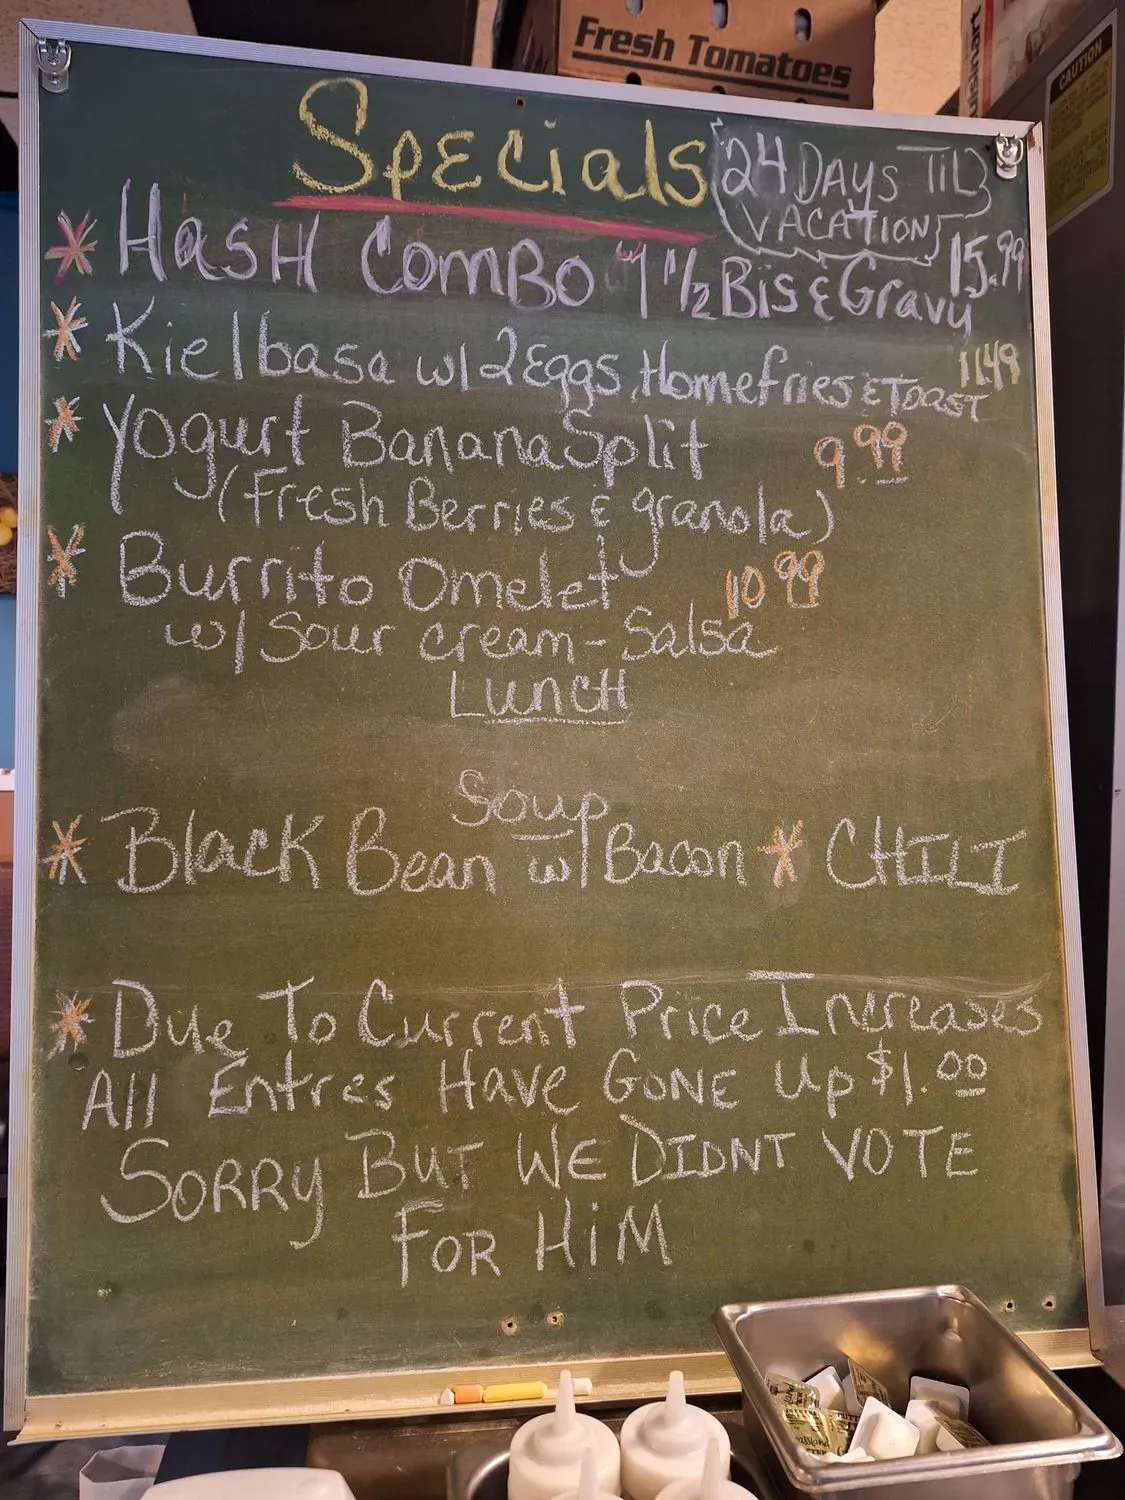 Fresh Tomatoes
uisinart
CAUTION
Specials
24 DAYS TIL
VACATION
* HASH COMBO w/ 1 1/2 Bis & Gravy 15.99
* Kielbasa w/ 2 Eggs, Homefries & TOAST 11.49
* Yogurt Banana Split 9.99
(Fresh Berries & granola)
* Burrito Omelet 10.99
w/ Sour cream - Salsa
LUNCH
Soup
* Black Bean w/ Bacon * CHILI
* Due To Current Price Increases
All Entres Have GONE Up $1.00
SORRY BUT WE DIDNT VOTE
FOR HiM